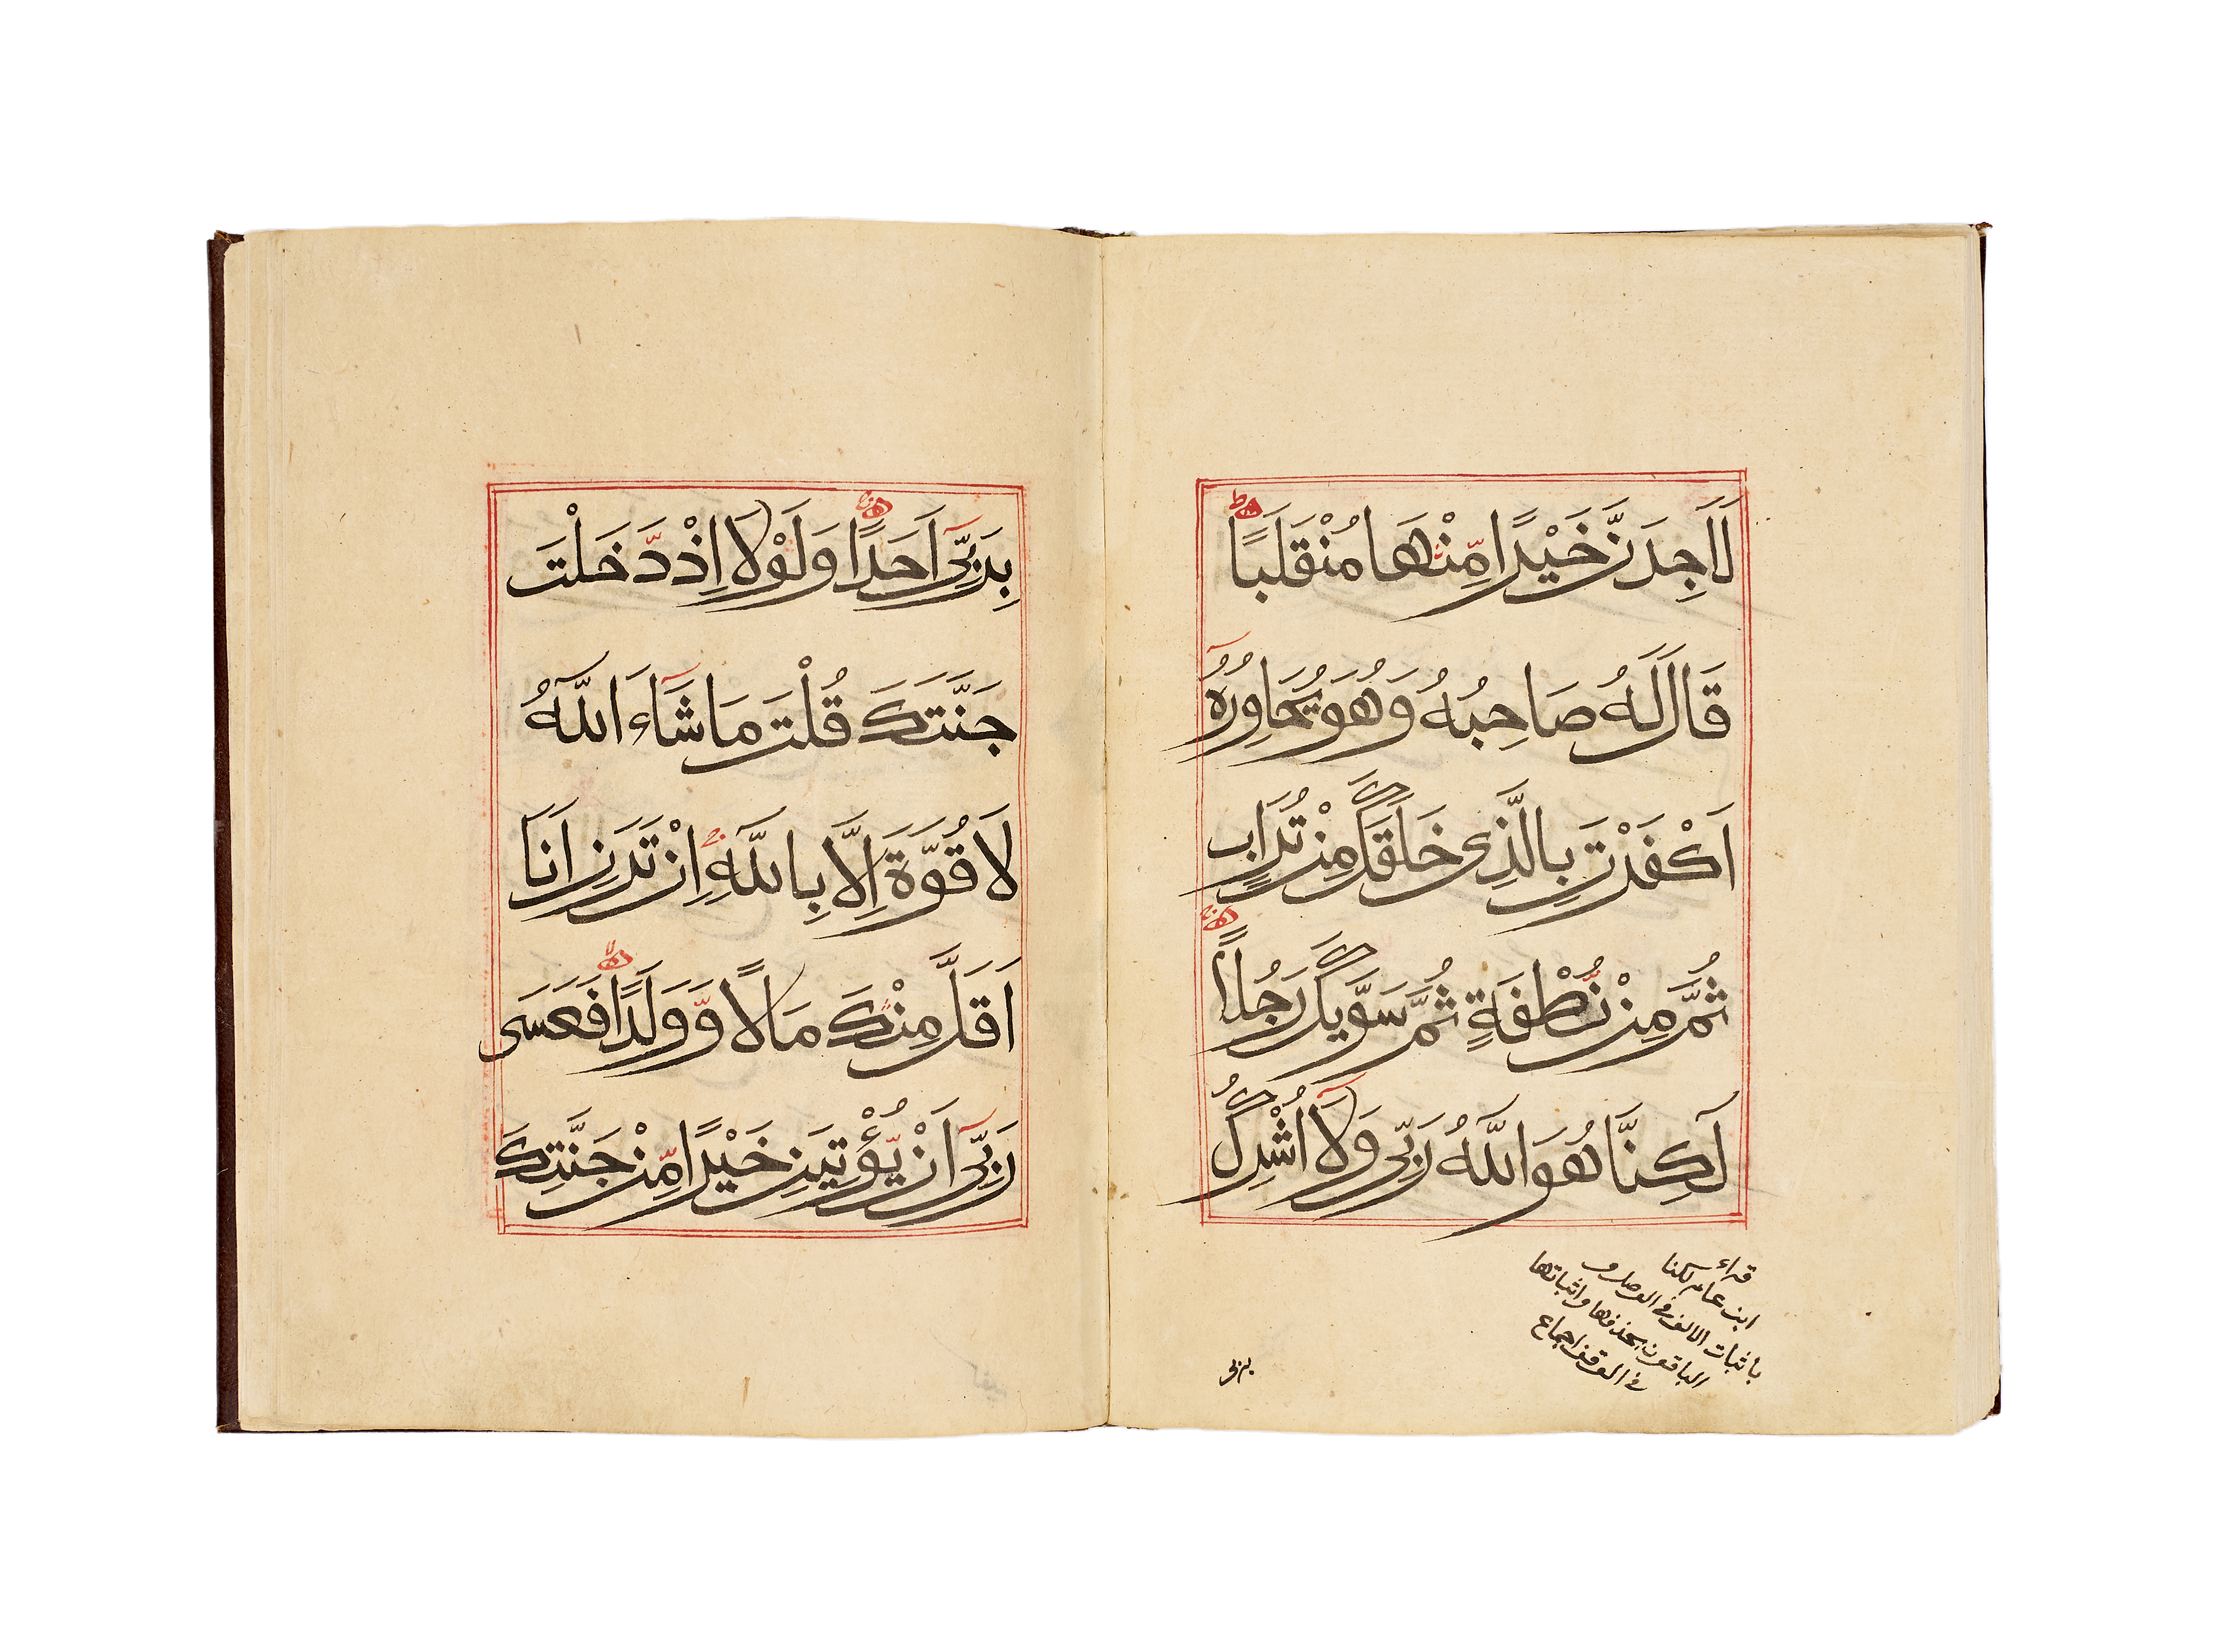 لَاَجِدَنَّ خَيْرًا مِّنْهَا مُنْقَلَبًا
قَالَ لَهُ صَاحِبُهُ وَهُوَ يُحَاوِرُهُ
اَكَفَرْتَ بِالَّذِى خَلَقَكَ مِنْ تُرَابٍ
ثُمَّ مِنْ نُّطْفَةٍ ثُمَّ سَوَّيكَ رَجُلًا
لَكِنَّا هُوَ اللّٰهُ رَبِّى وَلَا اُشْرِكُ
قراء
ابن عامر لكنا
باثبات الالف فى الوصل و
الباقون بحذفها واثباتها
فى الوقف اجماع
بربى
بِرَبِّى اَحَدًا وَلَوْلَا اِذْ دَّخَلْتَ
جَنَّتَكَ قُلْتَ مَا شَاءَ اللّٰهُ
لَا قُوَّةَ اِلَّا بِاللّٰهِ اِنْ تَرَنِ اَنَا
اَقَلَّ مِنْكَ مَالًا وَّوَلَدًا فَعَسَى
رَبِّى اَنْ يُّؤْتِيَنِ خَيْرًا مِّنْ جَنَّتِكَ